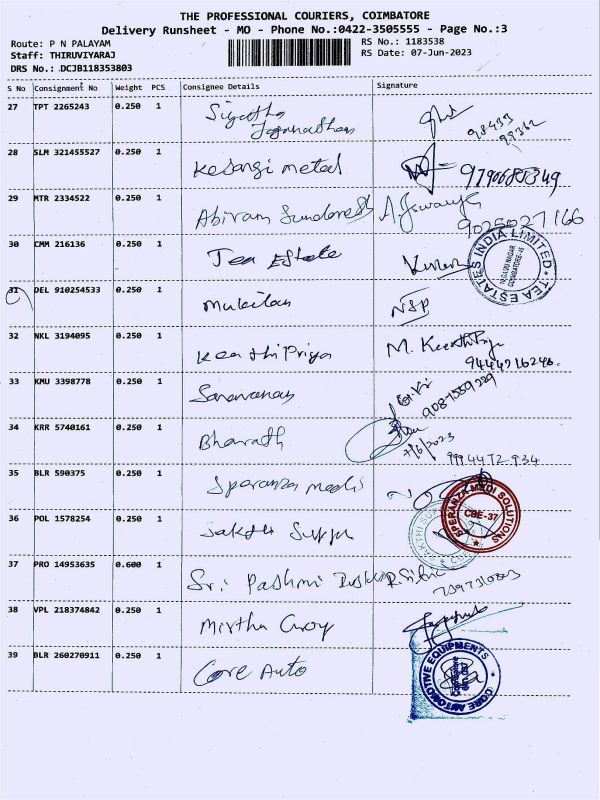 THE PROFESSIONAL COURIERS, COIMBATORE
Delivery Runsheet - MO - Phone No.:0422-3505555 - Page No.:3
Route: P N PALAYAM
RS No.: 1183538
Staff: THIRUVIYARAJ
RS Date: 07-Jun-2023
DRS No.: DCJB118353803
S No Consignment No Weight PCS Consignee Details Signature
27 TPT 2265243 0.250 1
28 SLM 321455527 0.250 1 metal 9790680349
29 MTR 2334522 0.250 1 Abiram Sundaresh 9025027166
30 CMM 216136 0.250 1 Tea Estate
TEA ESTATES INDIA LIMITED
31 DEL 910254533 0.250 1 Mukilan NSP
32 NKL 3194095 0.250 1 KeerthiPriya M. KeerthiPriya
9444716246.
33 KMU 3398778 0.250 1 Saravanan
34 KRR 5740161 0.250 1 Bharath
7/6/2023
9994472934
35 BLR 590375 0.250 1 Speranza medis
SPERANZA MEDI SOLUTIONS
CBE-37
36 POL 1578254 0.250 1 Sakthi
37 PRO 14953635 0.600 1 Sri
38 VPL 218374842 0.250 1 Mirtha
39 BLR 260270911 0.250 1 Core Auto
CORE AUTOMOTIVE EQUIPMENTS